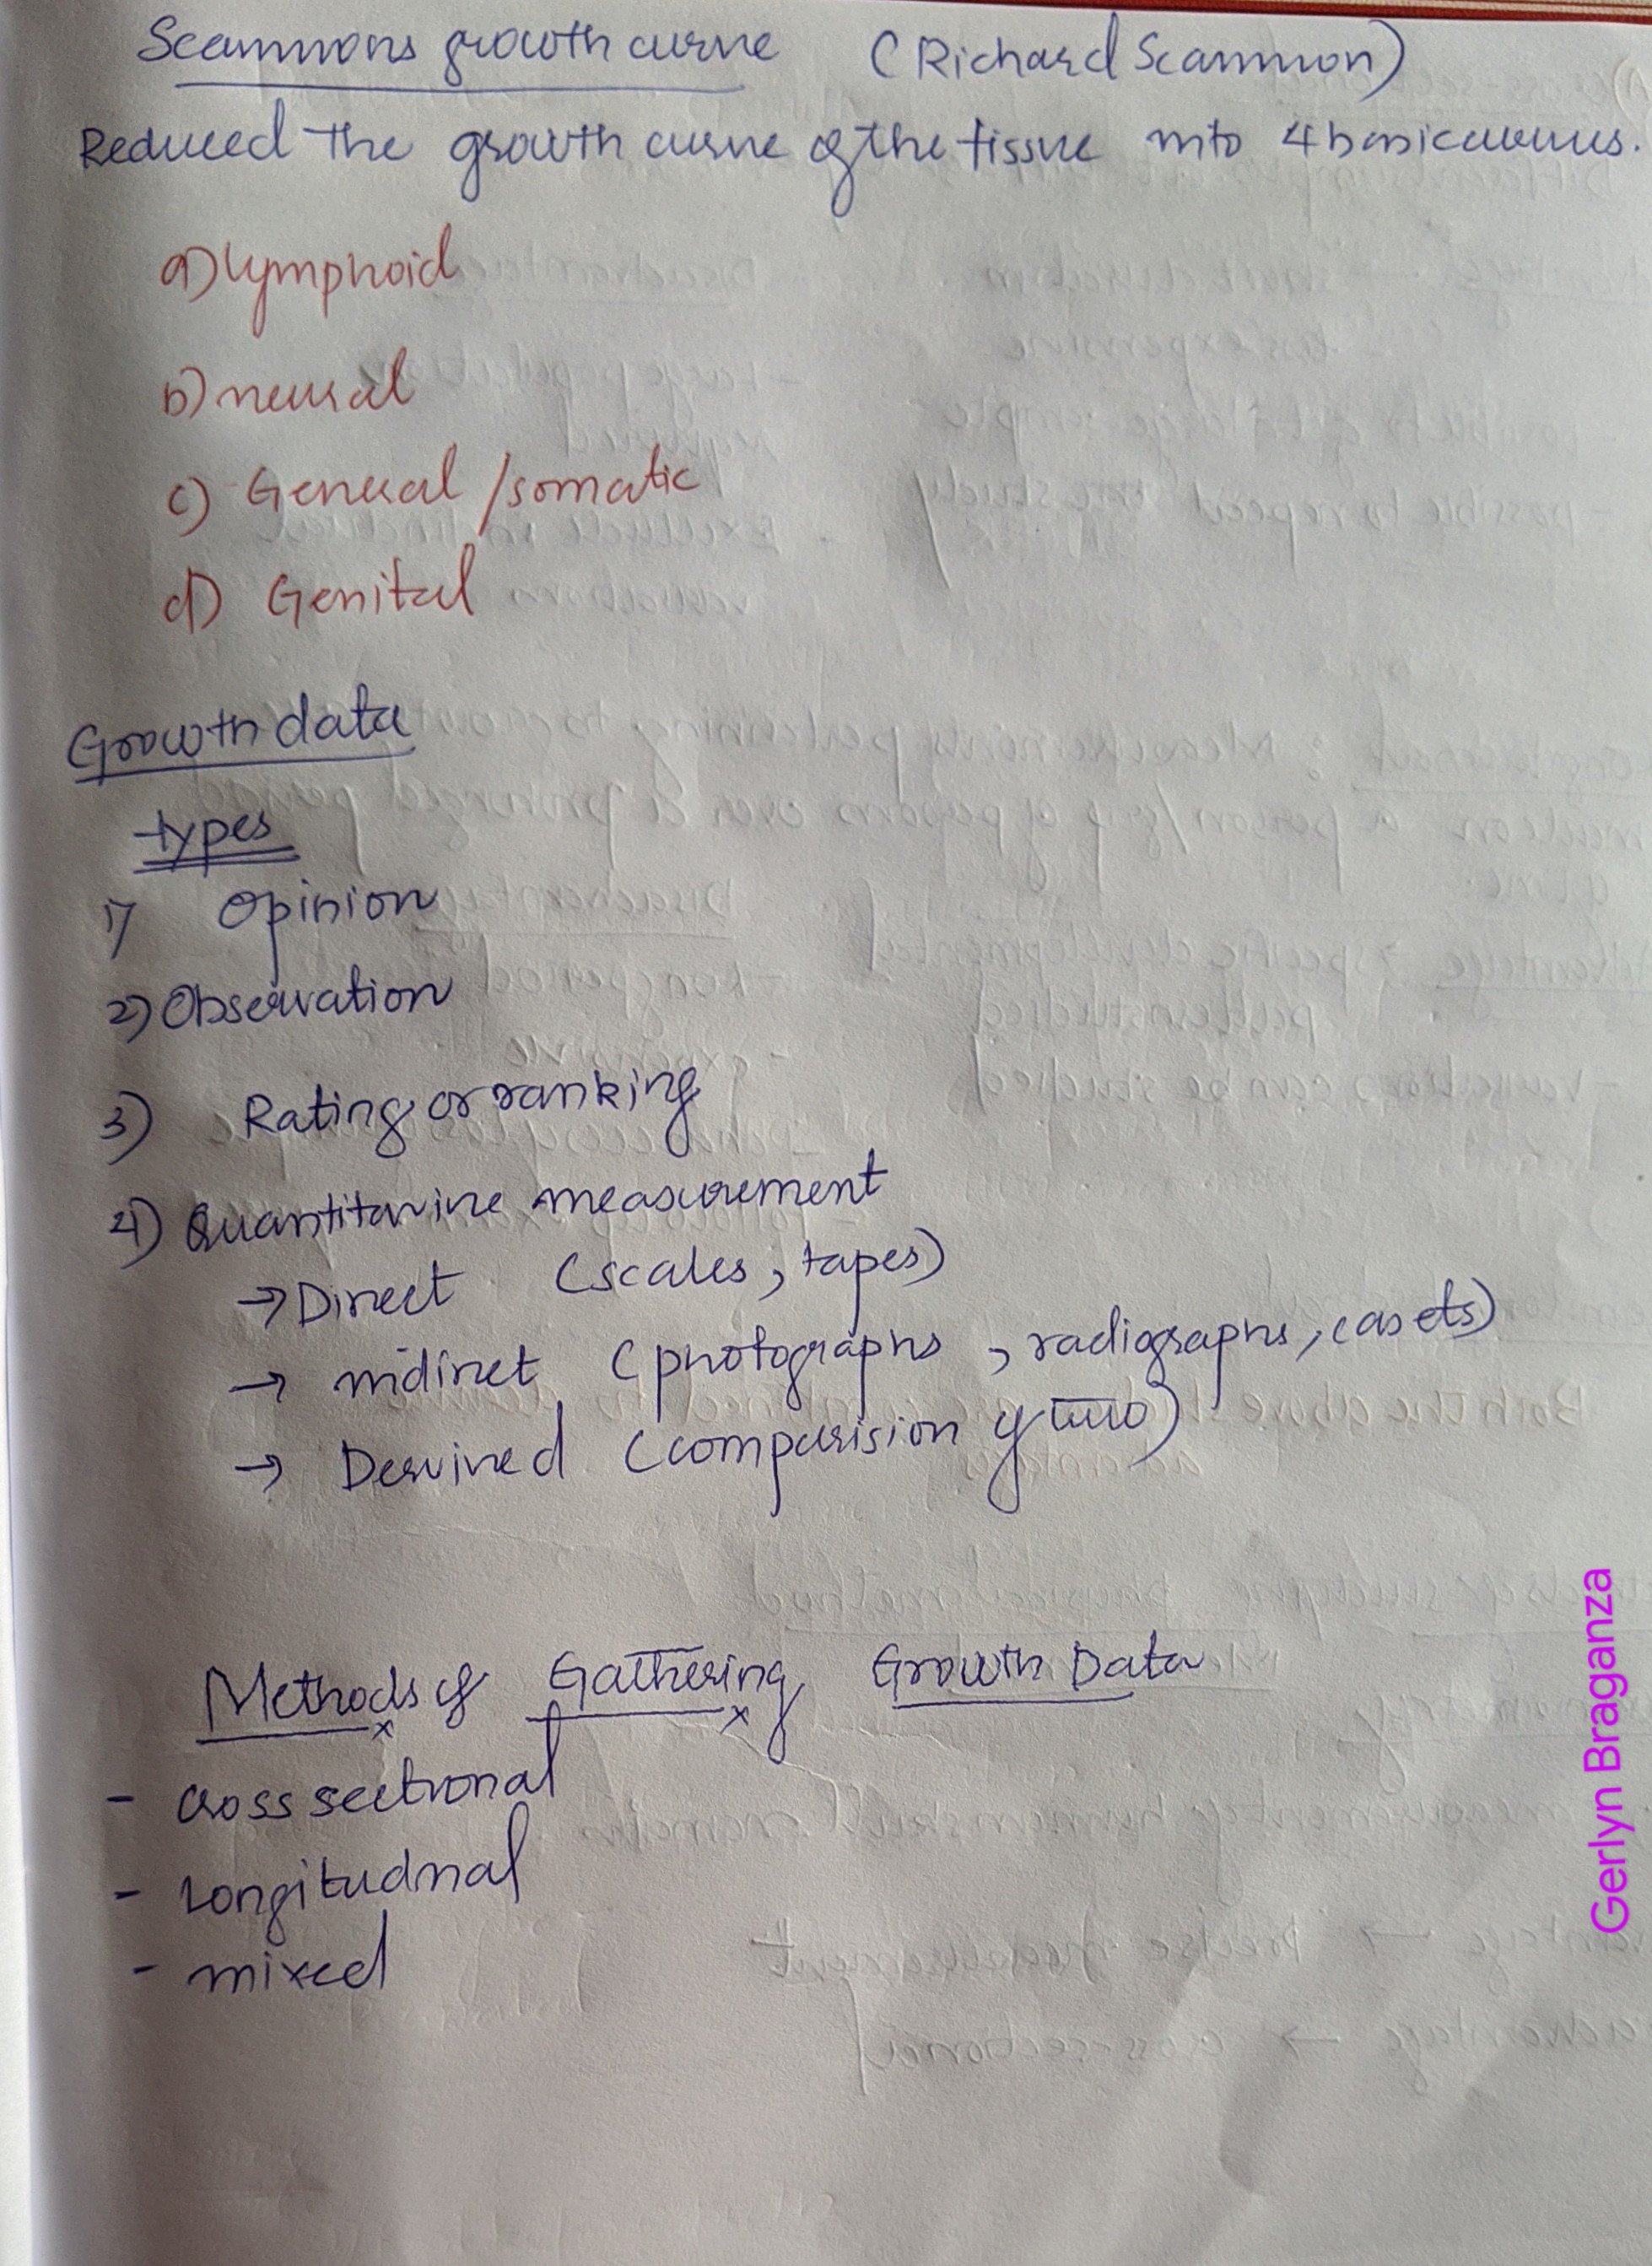 Scammons growth curve (Richard Scammon)
Reduced the growth curve of the tissue into 4 basic curves.
a) lymphoid
b) neural
c) General /somatic
d) Genital
Growth data
types
1) Opinion
2) Observation
3) Rating or ranking
4) Quantitative measurement
→ Direct (scales, tapes)
→ indirect (photographs, radiographs, casts)
→ Derived (comparision of two)
Methods of Gathering Growth Data
- cross sectional
- longitudnal
- mixed
Gerlyn Braganza